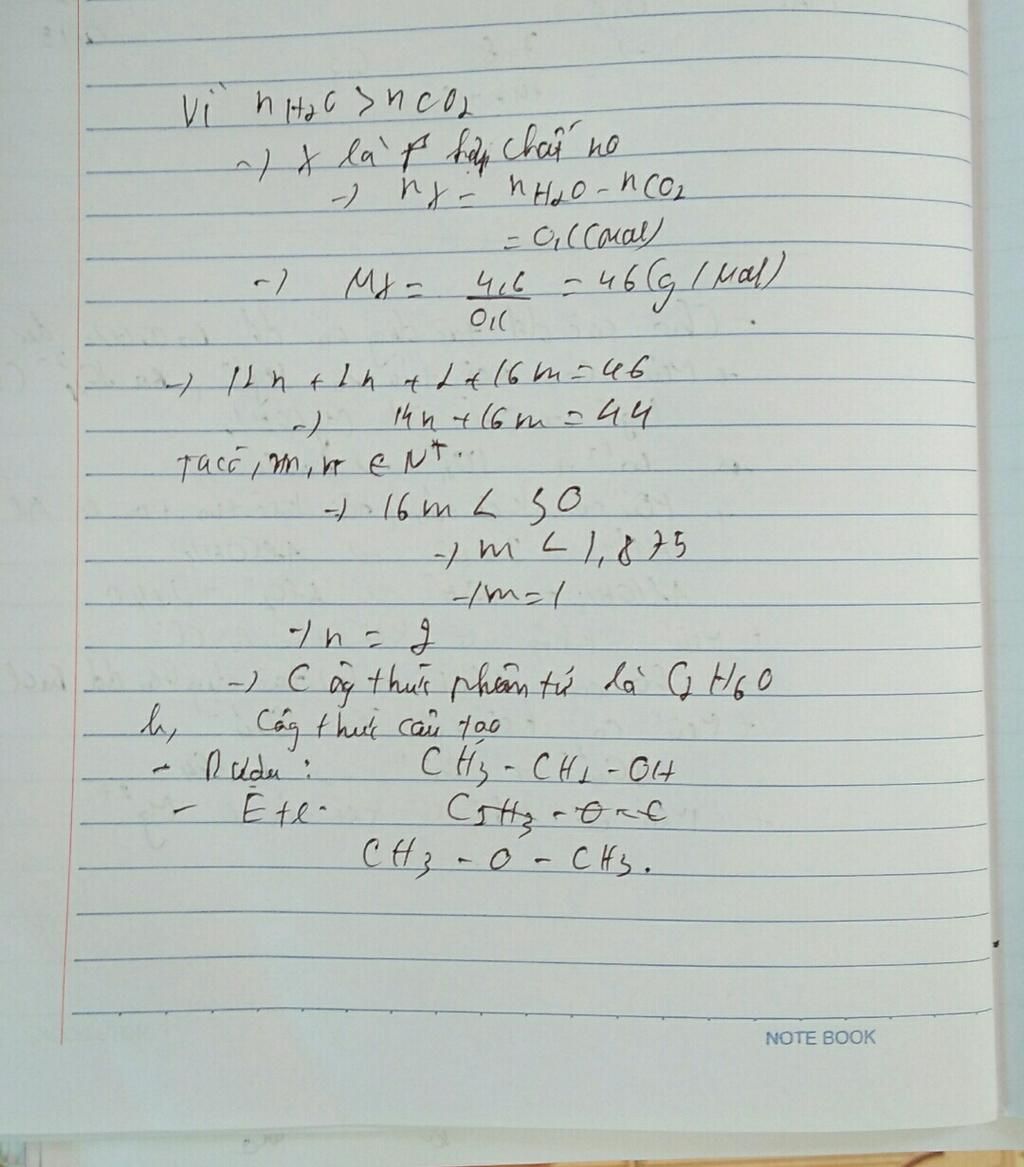 Vì nH2O > nCO2
-) X là hợp chất no
-) nX = nH2O - nCO2
= 0,1 (mol)
-) MX = 4,6 / 0,1 = 46 (g / mol)
-) 12n + 2n + 2 + 16m = 46
-) 14n + 16m = 44
Ta có, m, n ∈ N+
-) 16m < 30
-) m < 1,875
-) m = 1
-) n = 2
-) Công thức phân tử là C2H6O
b, Công thức cấu tạo
- Rượu: CH3 - CH2 - OH
- Ete.
CH3 - O - CH3.
NOTE BOOK